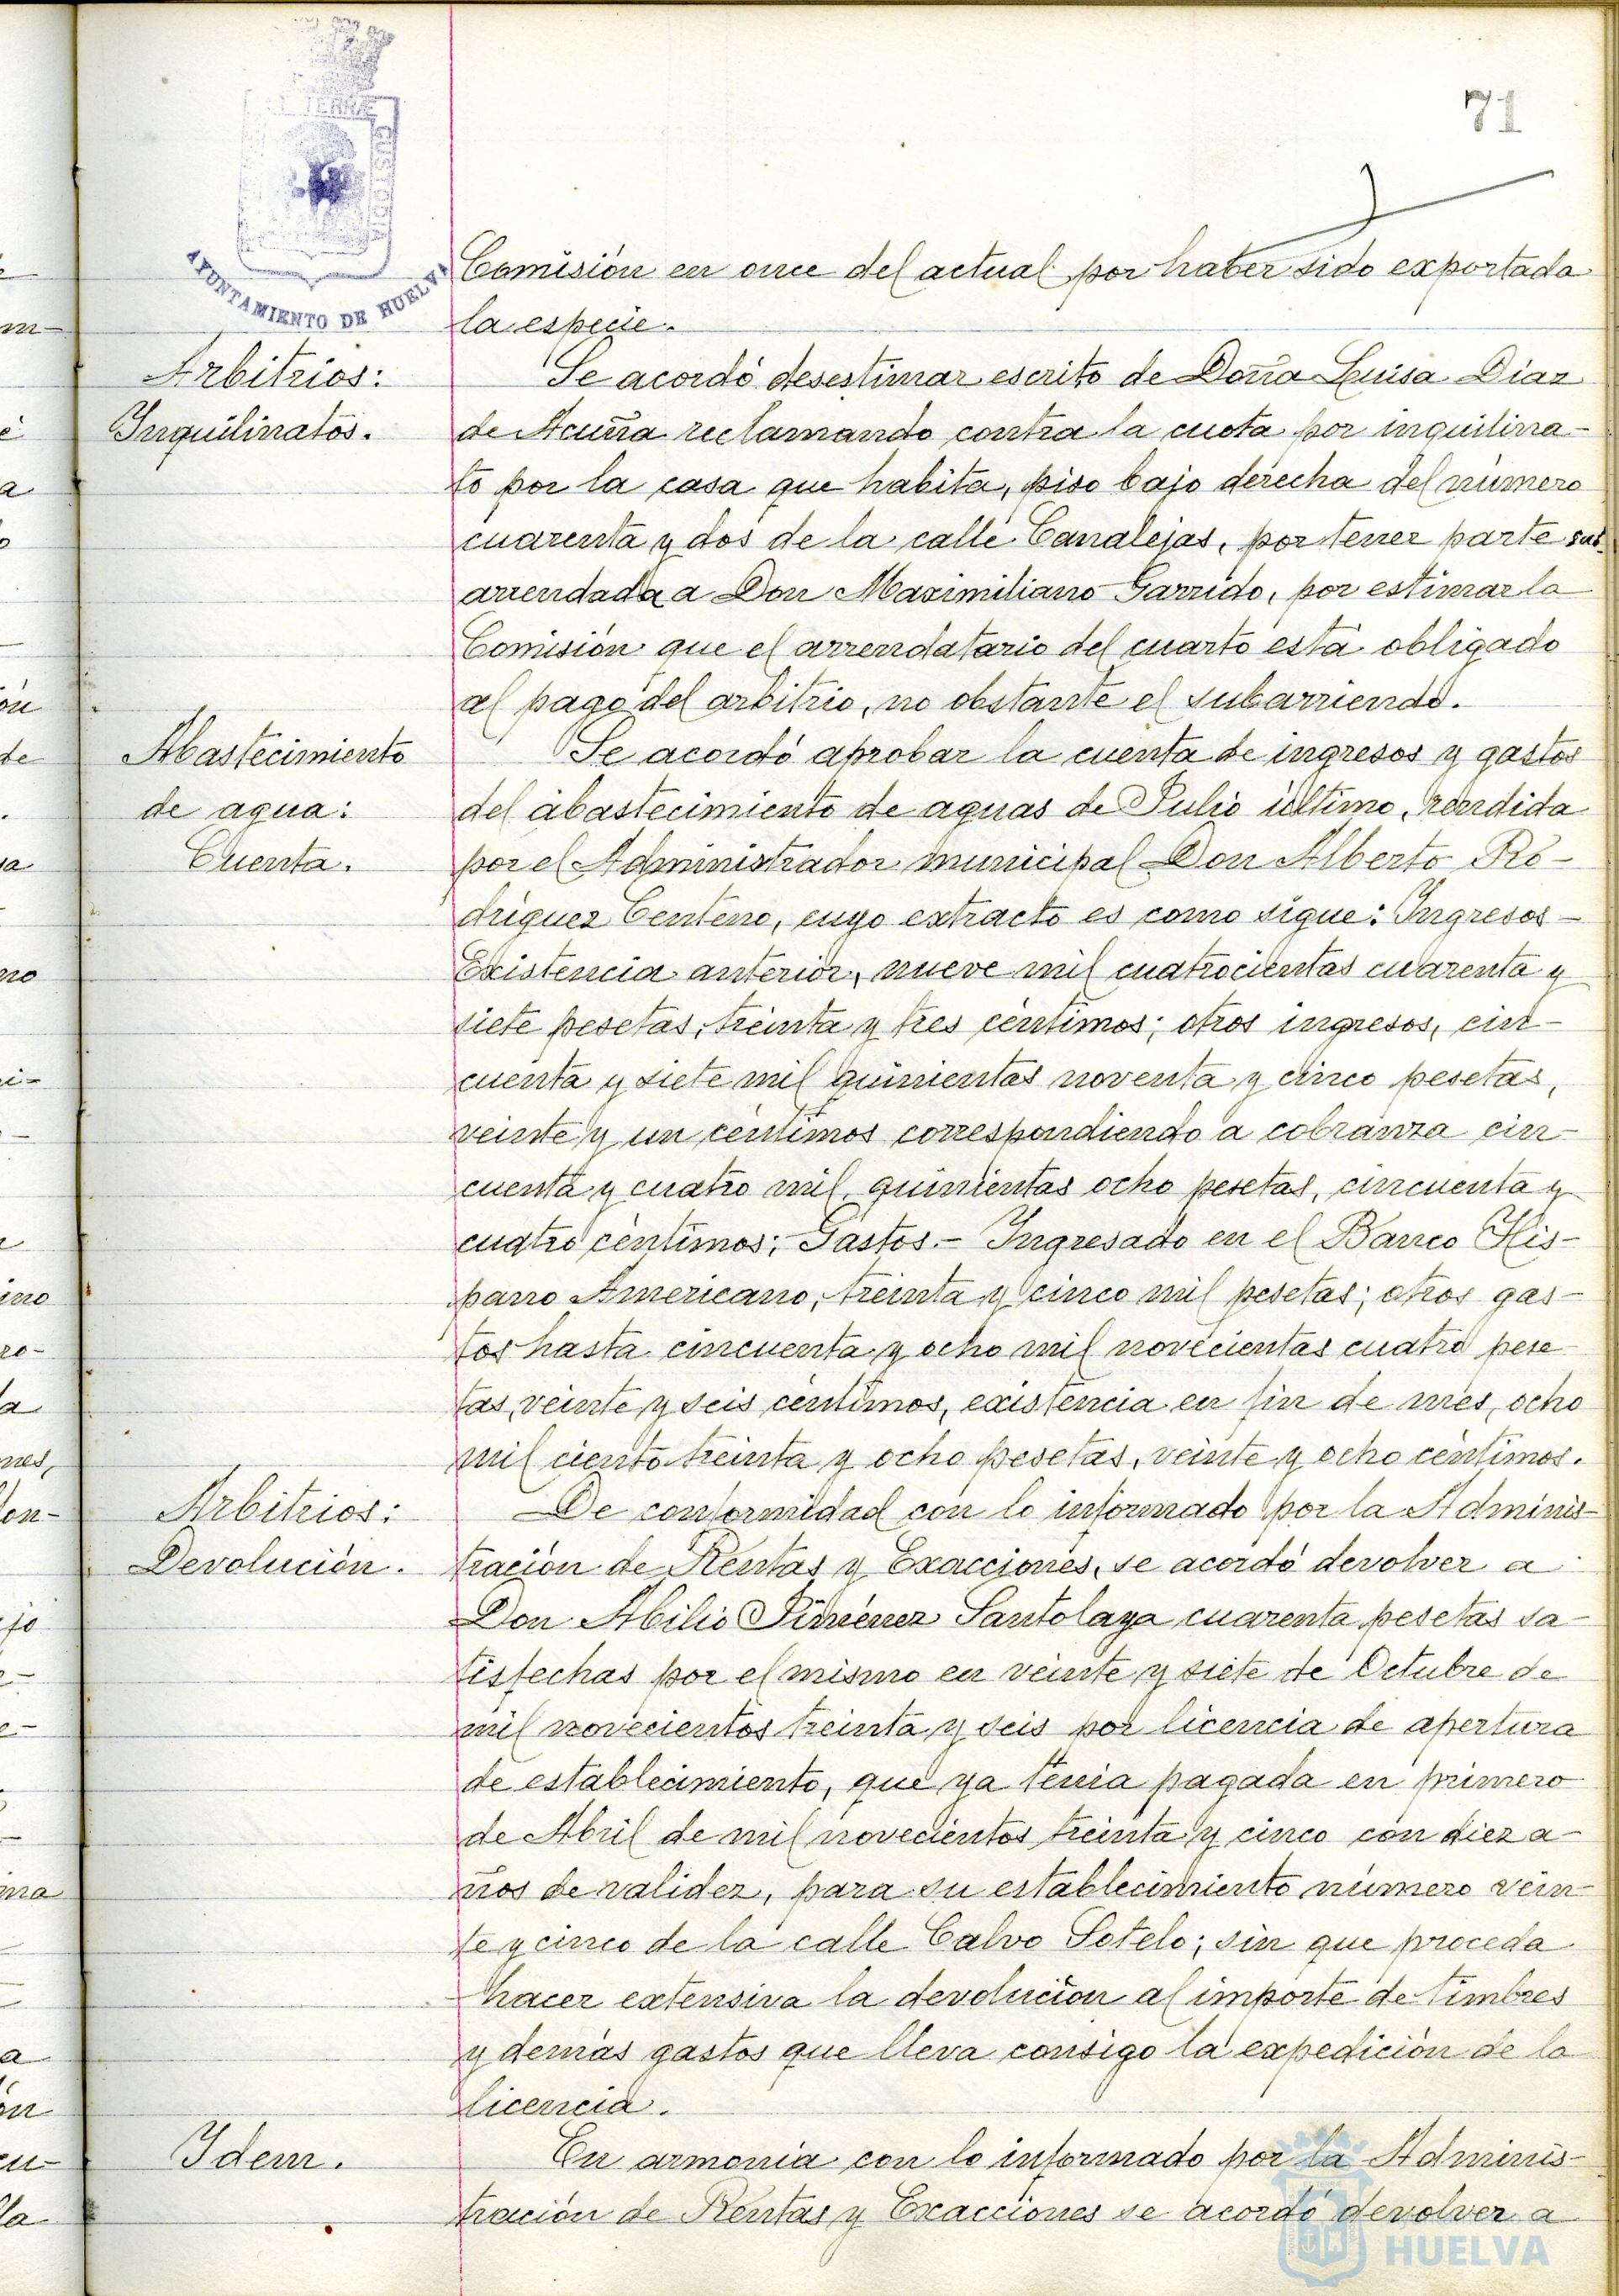 71
TERRÆ
CUSTODIA
AYUNTAMIENTO DE HUELVA
Comisión en once del actual por haber sido exportada
la especie.
Arbitrios:
Inquilinatos.
Se acordó desestimar escrito de Doña Luisa Diaz
de Acuña reclamando contra la cuota por inquilina-
to por la casa que habita, piso bajo derecha del número
cuarenta y dos de la calle Canalejas, por tener parte sub-
arrendada a Don Maximiliano Garrido, por estimar la
Comisión que el arrendatario del cuarto está obligado
al pago del arbitrio, no obstante el subarriendo.
Abastecimiento
de agua:
Cuenta.
Se acordó aprobar la cuenta de ingresos y gastos
del abastecimiento de aguas de Julio último, rendida
por el Administrador municipal Don Alberto Ro-
driguez Centeno, cuyo extracto es como sigue: Ingresos-
Existencia anterior, nueve mil cuatrocientas cuarenta y
siete pesetas, treinta y tres céntimos; otros ingresos, cin-
cuenta y siete mil quinientas noventa y cinco pesetas,
veinte y un céntimos correspondiendo a cobranza cin-
cuenta y cuatro mil, quinientas ocho pesetas, cincuenta y
cuatro céntimos; Gastos.- Ingresado en el Banco His-
pano Americano, treinta y cinco mil pesetas; otros gas-
tos hasta cincuenta y ocho mil novecientas cuatro pese
tas, veinte y seis céntimos, existencia en fin de mes, ocho
mil ciento treinta y ocho pesetas, veinte y ocho céntimos.
Arbitrios:
Devolución.
De conformidad con lo informado por la Adminis-
tración de Rentas y Exacciones, se acordó devolver a
Don Abilio Jiménez Santolaya cuarenta pesetas sa-
tisfechas por el mismo en veinte y siete de Octubre de
mil novecientos treinta y seis por licencia de apertura
de establecimiento, que ya tenia pagada en primero
de Abril de mil novecientos treinta y cinco con diez a-
ños de validez, para su establecimiento número vein-
te y cinco de la calle Calvo Sotelo; sin que proceda
hacer extensiva la devolución al importe de timbres
y demás gastos que lleva consigo la expedición de la
licencia.
Idem.
En armonia con lo informado por la Adminis-
tración de Rentas y Exacciones se acordó devolver a
HUELVA